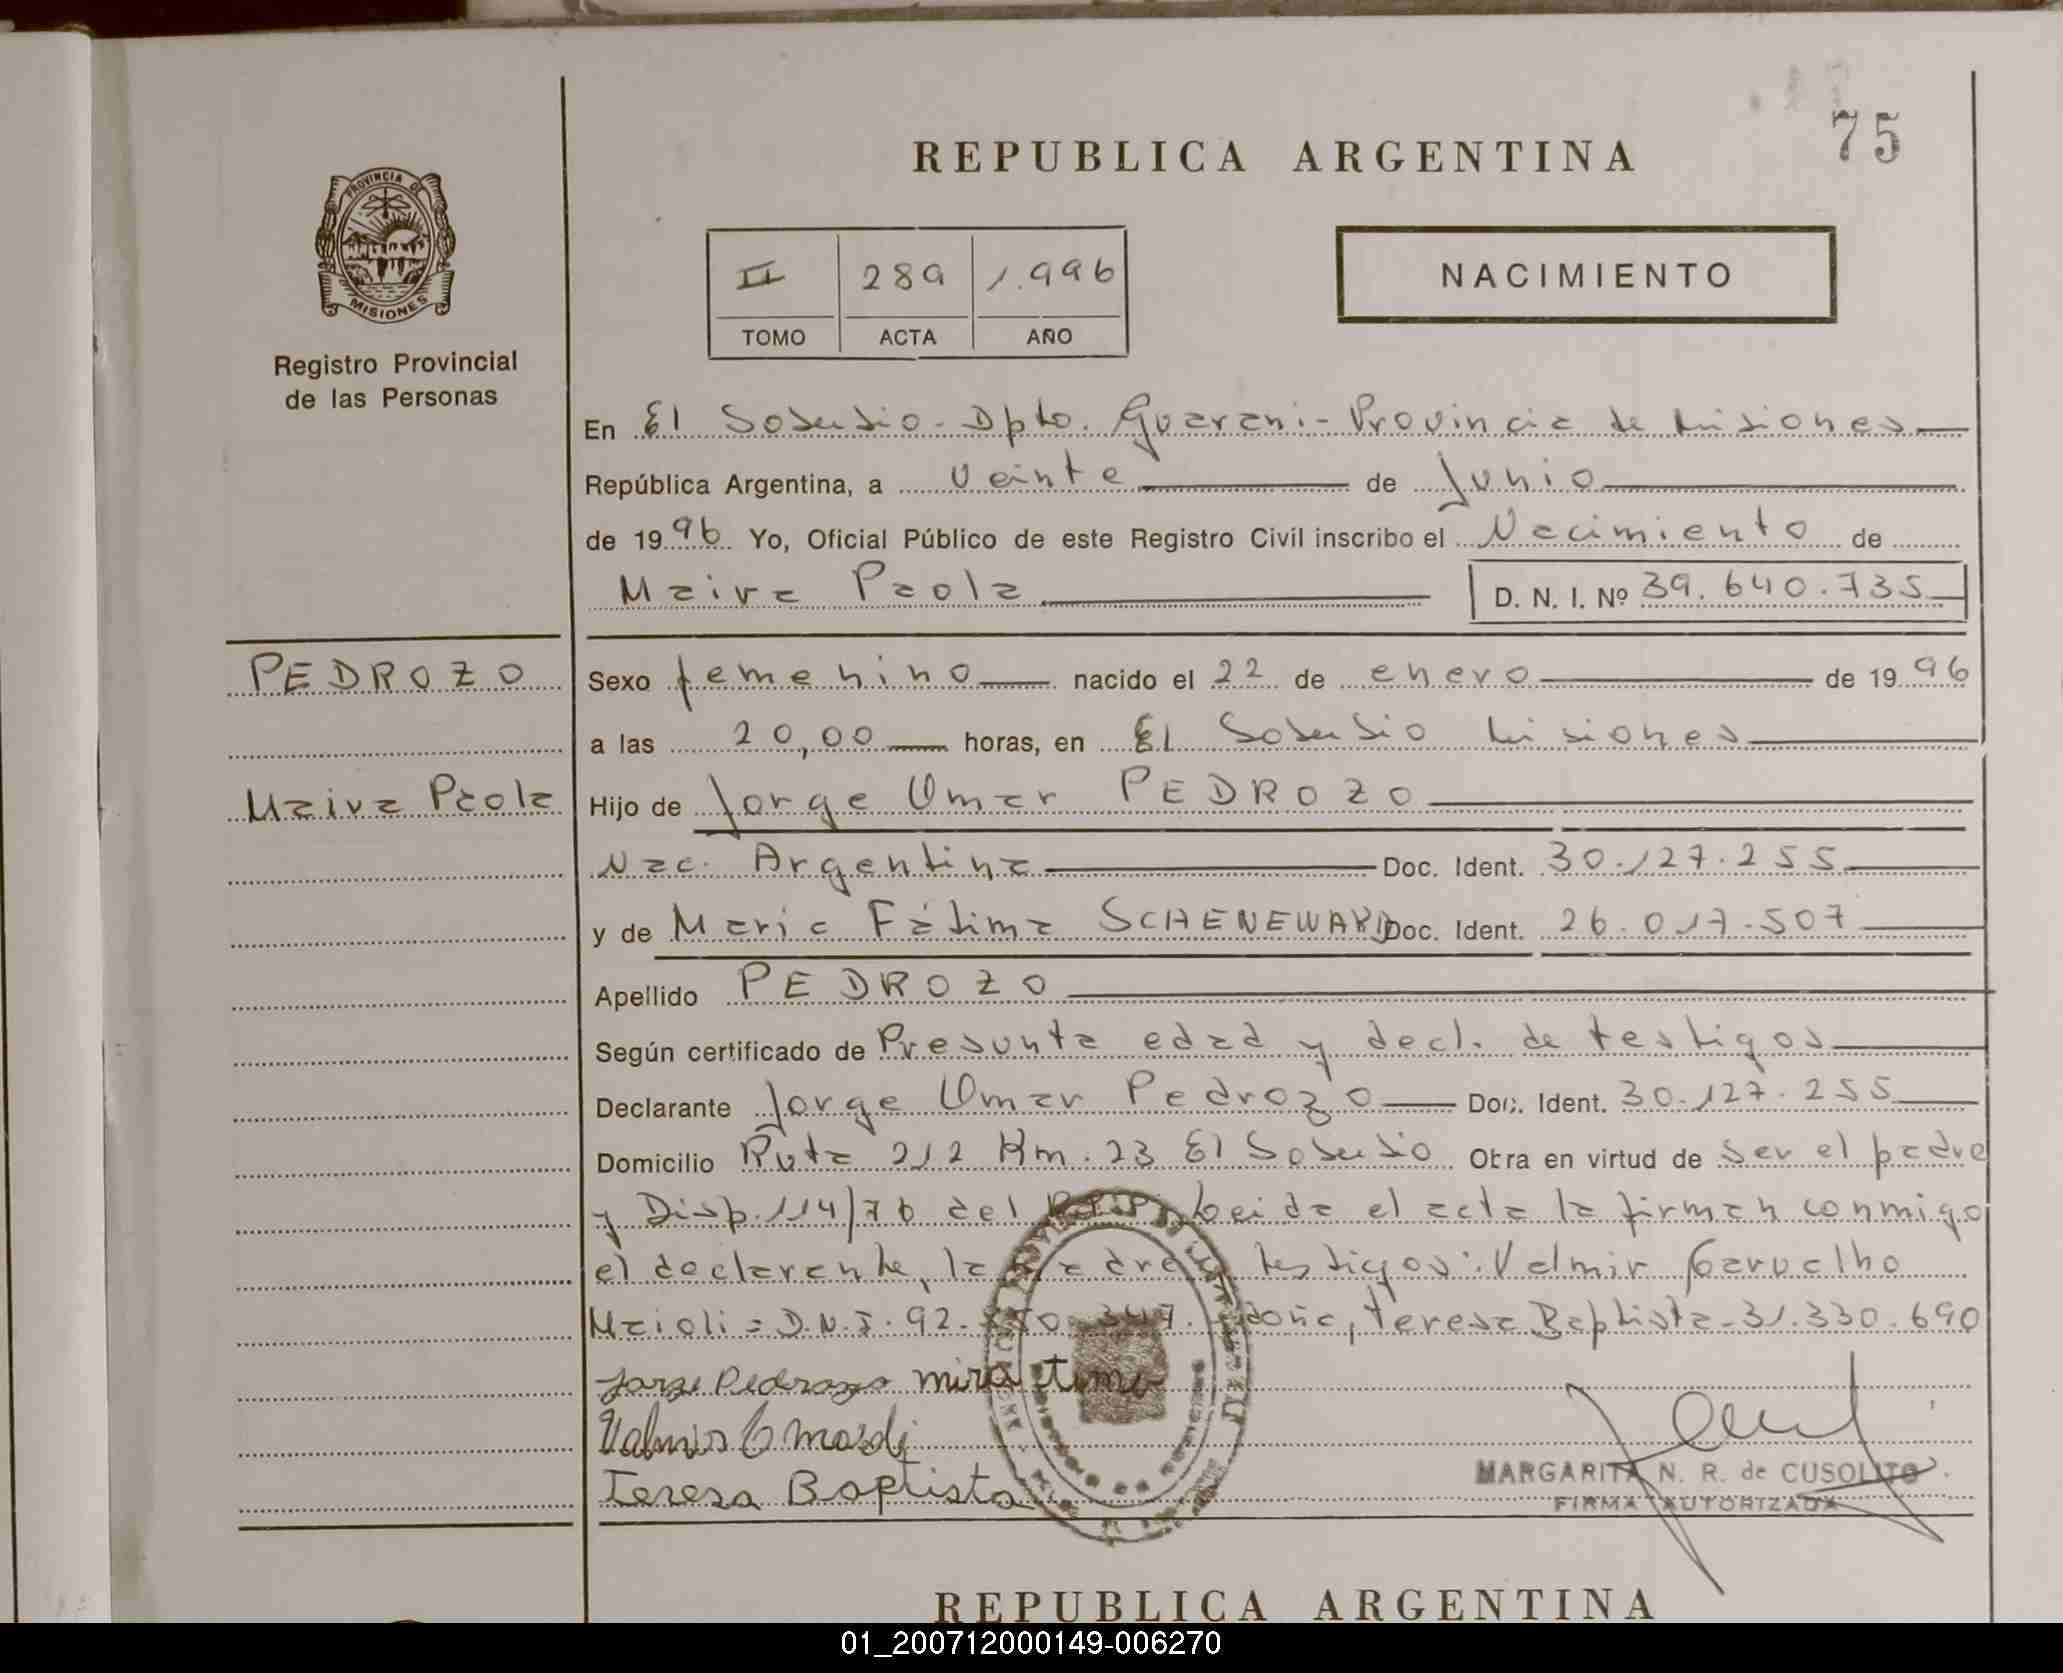 75
REPUBLICA ARGENTINA
PROVINCIA DE
MISIONES
Registro Provincial
de las Personas
II 289 1.996
TOMO ACTA AÑO
NACIMIENTO
En El Soberbio - Dpto. Guarani - Provincia de Misiones
República Argentina, a veinte de Junio
de 1996 Yo, Oficial Público de este Registro Civil inscribo el Nacimiento de
Maira Paola D. N. I. Nº 39.640.735
PEDROZO
Maira Paola
Sexo femenino nacido el 22 de enero de 1996
a las 20,00 horas, en El Soberbio Misiones
Hijo de Jorge Omar PEDROZO
Nac. Argentina Doc. Ident. 30.127.255
y de Maria Fátima SCHENEWARD Doc. Ident. 26.017.507
Apellido PEDROZO
Según certificado de Presunta edad y decl. de testigos
Declarante Jorge Omar Pedrozo Doc. Ident. 30.127.255
Domicilio Ruta 212 Km. 23 El Soberbio Obra en virtud de ser el padre
y Disp. 114/76 del R.P.P. Leida el acta la firman conmigo
el declarante, la madre y testigos: Valmir Carvalho
Maioli = D.N.I. 92. 347. doña, Teresa Baptista - 31.330.690
Jorge Pedrozo
Teresa Baptista
MARGARITA N. R. de CUSOLITO
FIRMA AUTORIZADA
REPUBLICA ARGENTINA
01_200712000149-006270